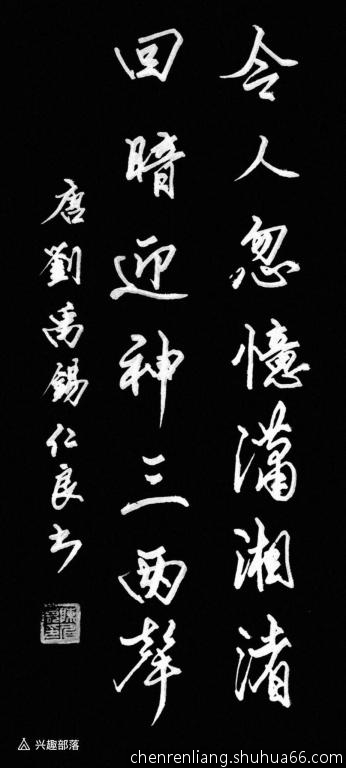 令人忽憶瀟湘渚
回暗迎神三兩聲
唐劉禹錫仁良书
兴趣部落
chenrenliang.shuhua66.com